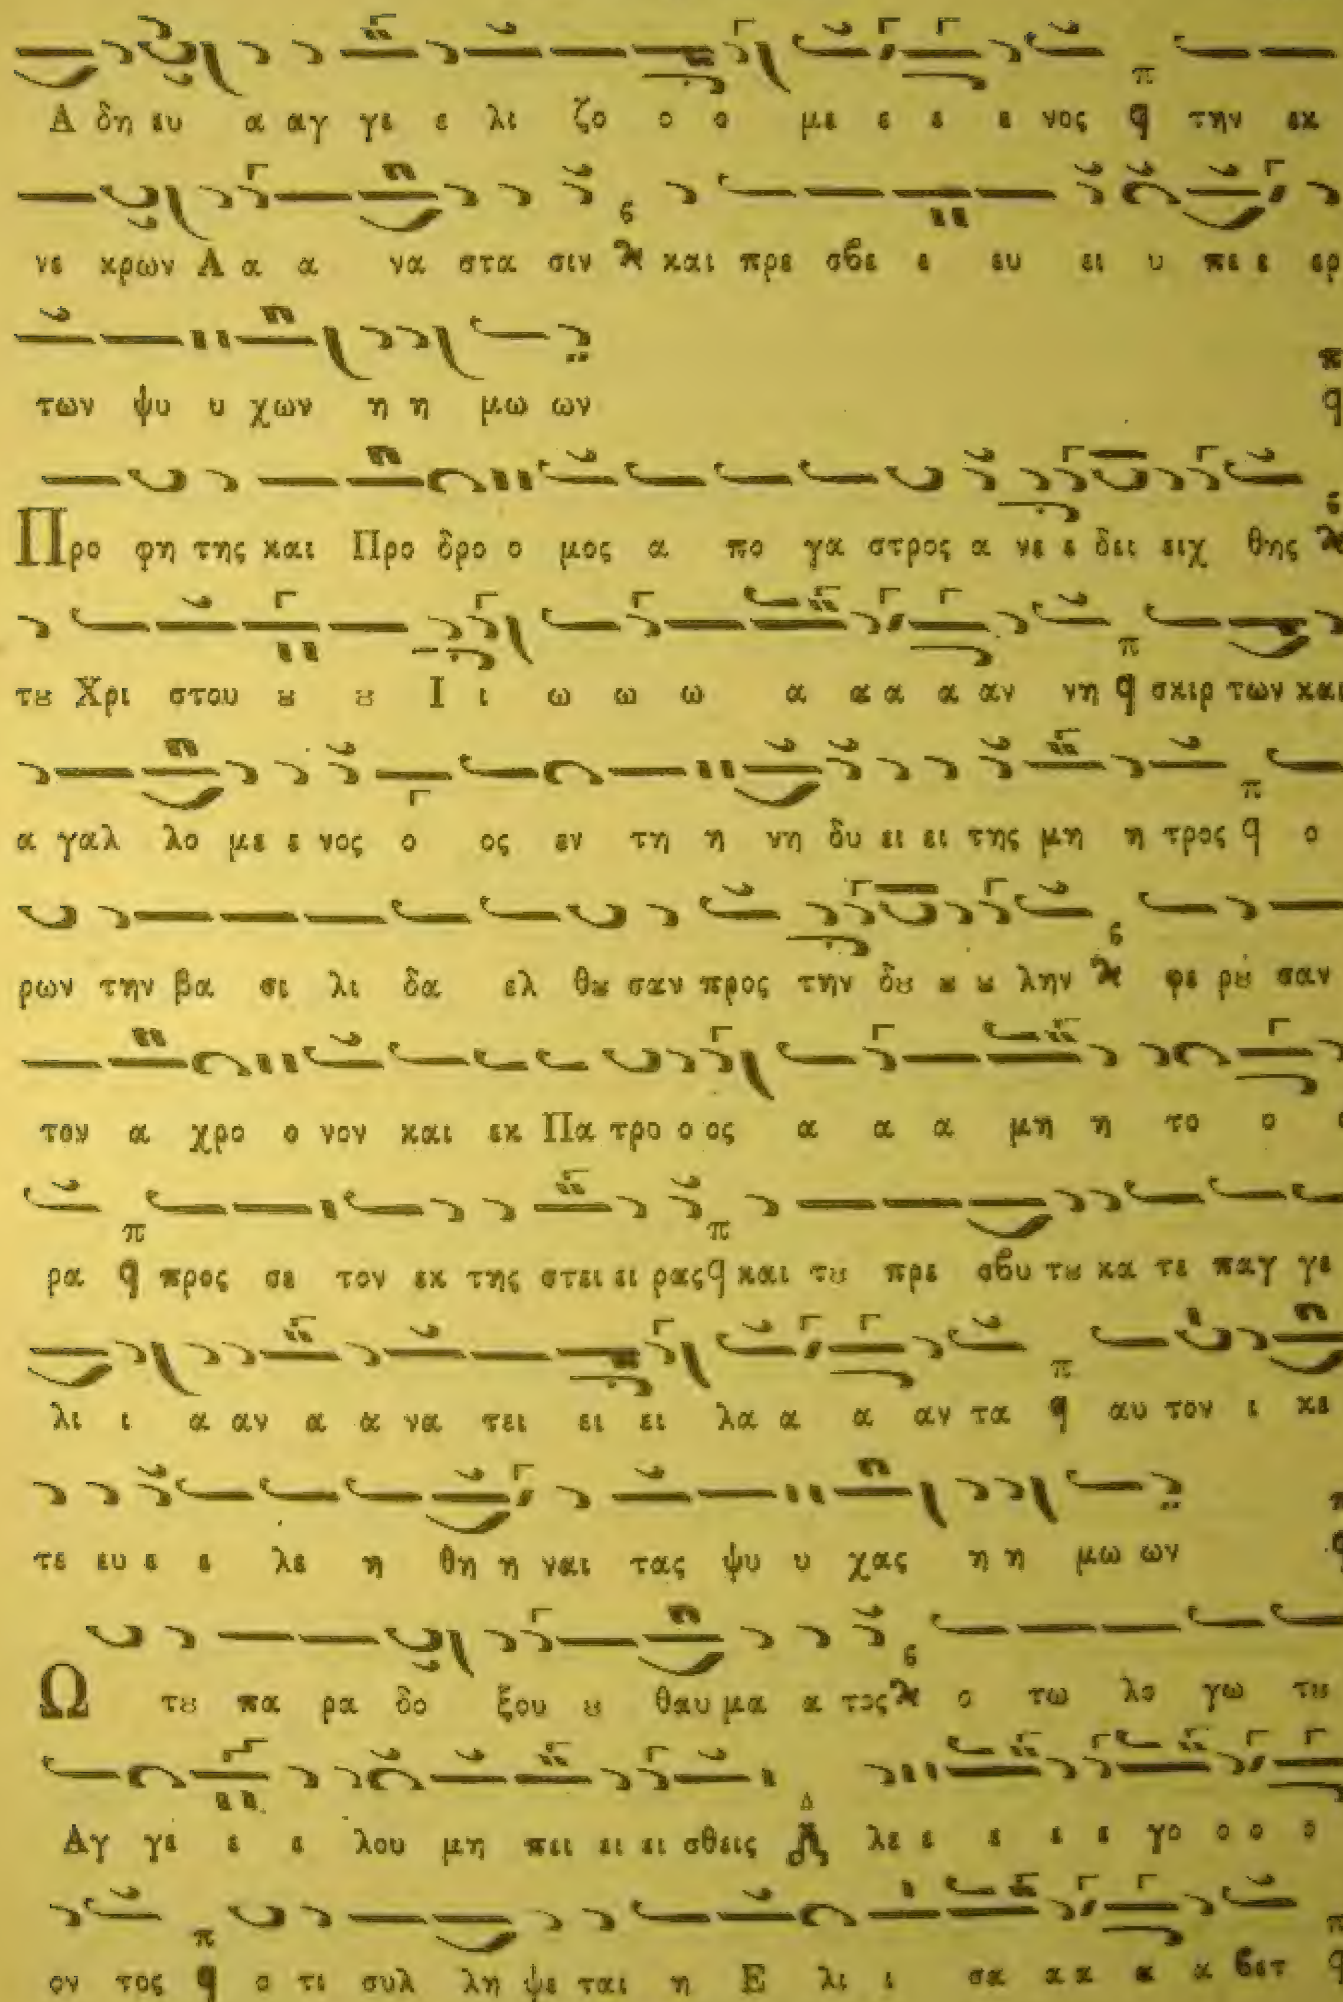 Α δη ευ α αγ γε ε λι ζο ο ο με ε ε ε νος την εκ
νε κρων Α α α να στα σιν και πρε σβε ε ευ ει υ πε ε ερ
των ψυ υ χων η η μω ων
Προ φη της και Προ δρο ο μος α πο γα στρος α νε ε δει ειχ θης
τȣ Χρι στου ȣ ȣ Ι ι ω ω ω α α α α αν νη σκιρ των και
α γαλ λο με ε νος ο ος εν τη η νη δυ ει ει της μη η τρος ο
ρων την βα σι λι δα ελ θȣ σαν προς την δȣ ȣ ȣ λην φε ρȣ σαν
τον α χρο ο νον και εκ Πα τρο ο ος α α α μη η το ο
ρα προς σε τον εκ της στει ει ρας και τȣ πρε σβυ τȣ κα τε παγ γε
λι ι α αν α α να τει ει ει λα α α αν τα αυ τον ι κε
τε ευ ε ε λε η θη η ναι τας ψυ υ χας η η μω ων
Ω τȣ πα ρα δο ξου ȣ θαυ μα α τος ο τω λο γω τȣ
Αγ γε ε ε λου μη πει ει ει σθεις λε ε ε ε ε γο ο ο ο
ον τος ο τι συλ λη ψε ται η Ε λι ι σα α α α α βετ